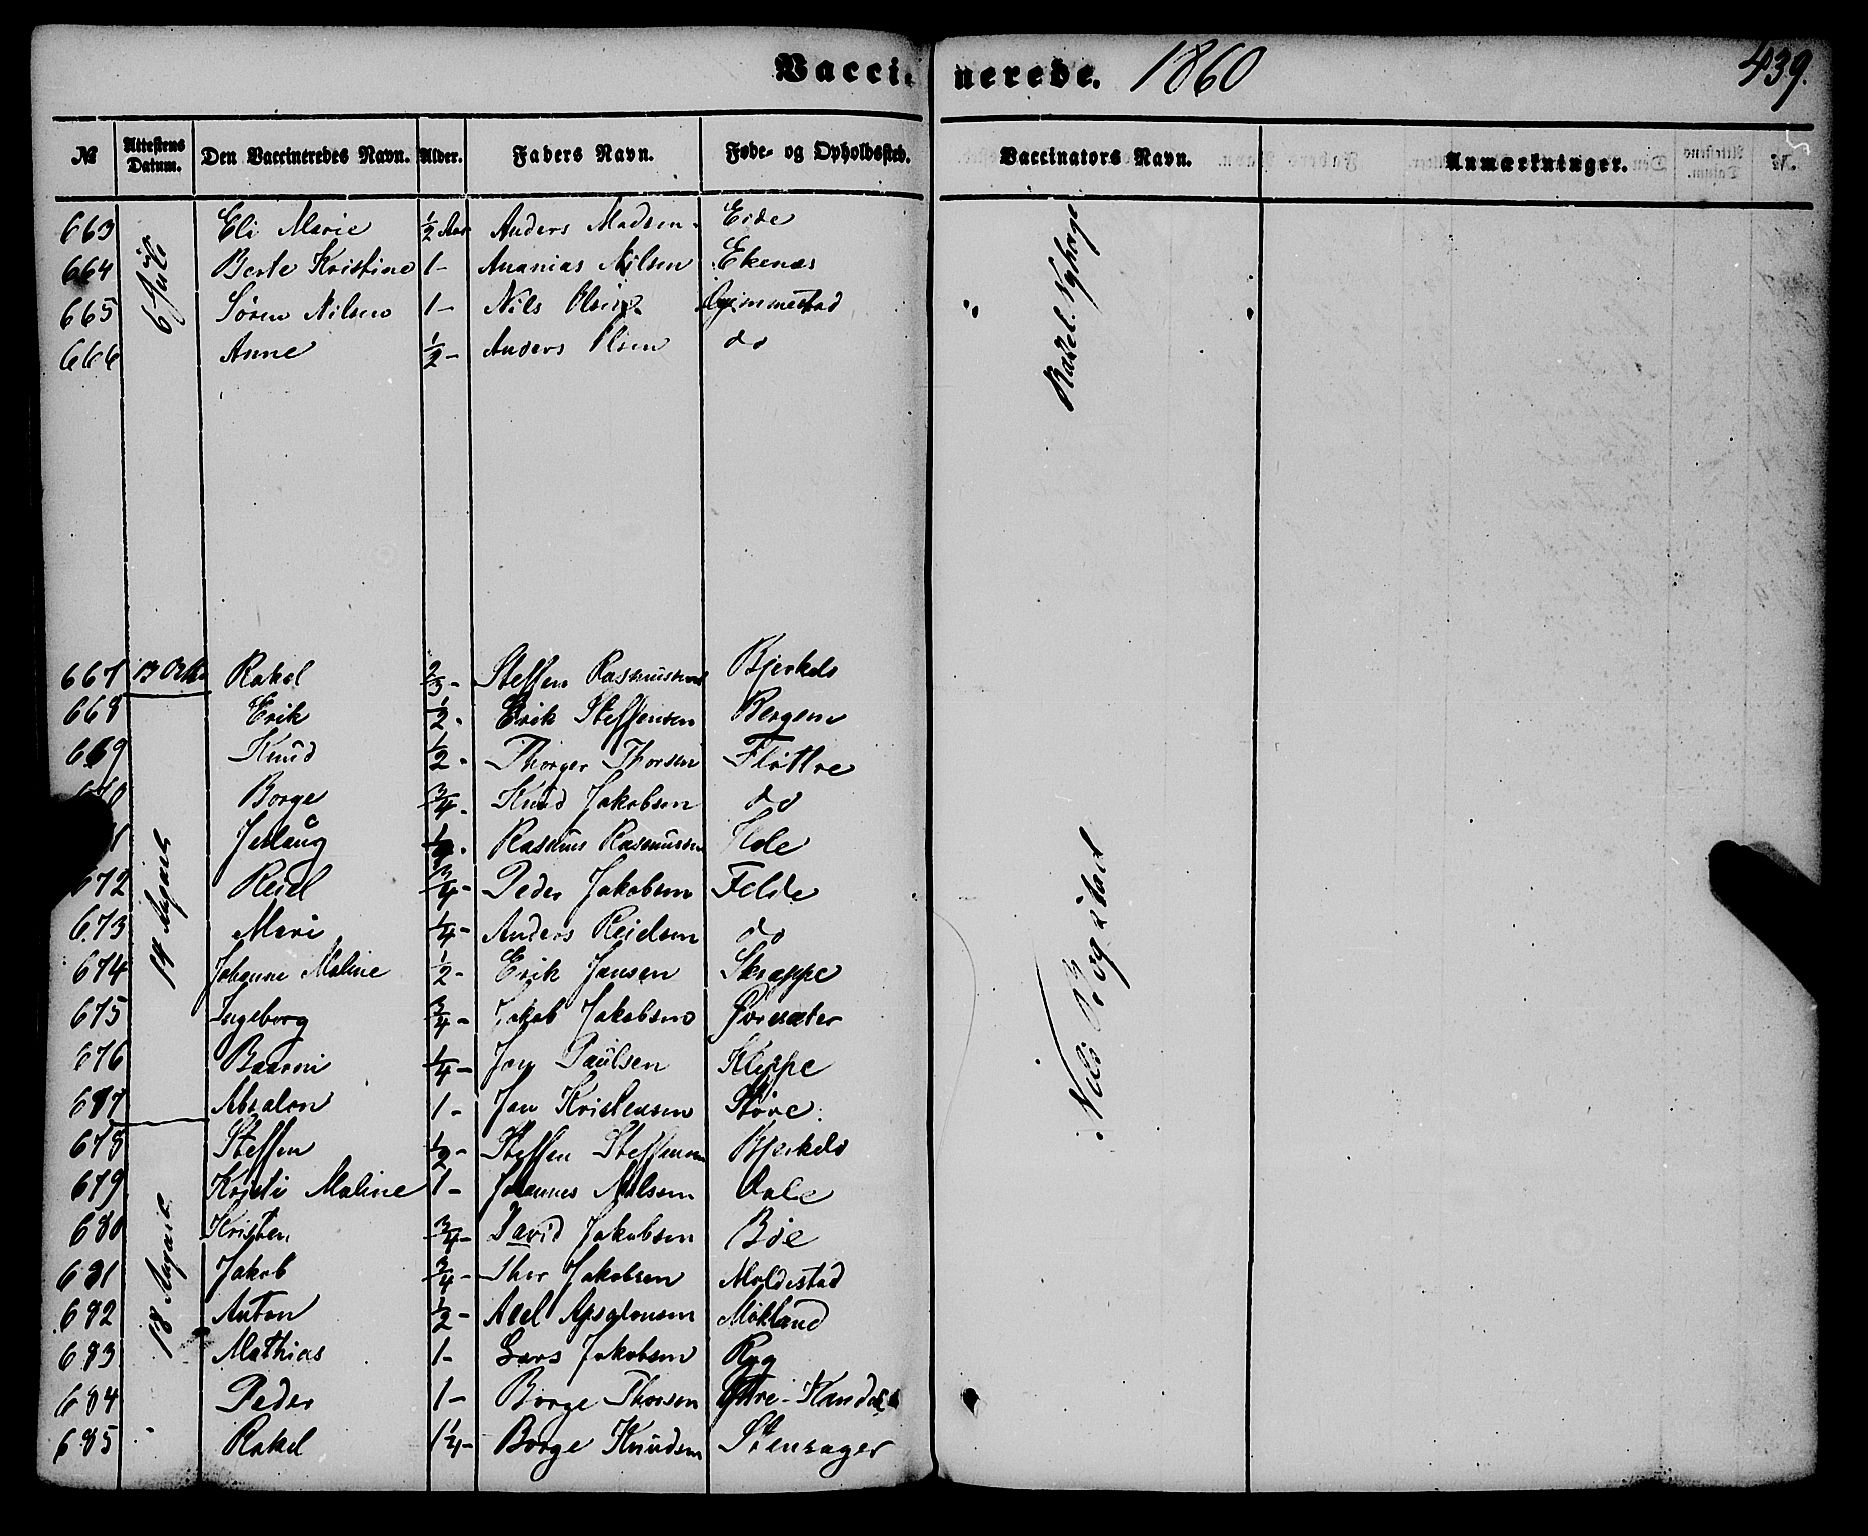 Vaccinerede. 1860 439.
№ Attestens Datum. Den Vaccineredes Navn. Alder. Faders Navn. Føde- og Opholdssted. Vaccinators Navn. Anmærkninger.
663 6 Juli Eli Marie ½ Aar Anders Madsen Eide
664 Berte Kristine 1- Ananias Nilsen Ekenæs
665 Søren Nilsen 1- Nils Olsen Gjimmestad
666 Anne ½- Anders Olsen do
667 13 Rakel 2/3- Steffen Rasmussen Bjerkelo
668 Erik ½- Erik Steffensen Bergem
669 Knud ½- Thorger Thorsen Fløttre
Borge ¾- Knud Jakobsen do
Jerlaug Rasmus Rasmussen
672 14 August Reiel ¾- Peder Jakobsen Felde
673 Mari ¼- Anders Reielsen do
674 Johanne Maline ½- Erik Jansen Skrappe
675 Ingeborg ¾- Jakob Jakobsen
676 ¼- Jan Paulsen Kleppe
677 Absalon 1- Jan Kristensen Støre
678 Steffen ½- Steffen Steffensen Bjerkelo
679 Kristi Maline 1- Johannes Nilsen
680 Kristen ¾- David Jakobsen Bøe
681 18 August Jakob ¾- Thor Jakobsen Moldestad
682 Anton ½- Abel Apsalonsen Mokland
683 Mathias 1- Lars Jakobsen Ryg
684 Peder 1- Borge Thorsen
685 Rakel 1¼- Borge Knudsen Stensager
Rakel Nyhage
Nils Rogstad